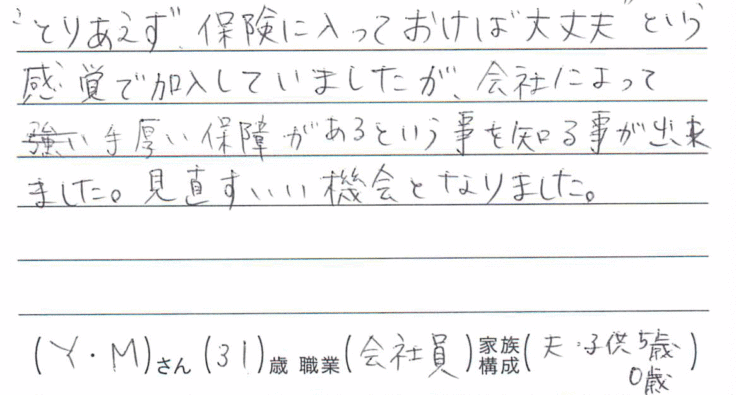 "とりあえず、保険に入っておけば大丈夫"という
感覚で加入していましたが、会社によって
強い手厚い保障があるという事を知る事が出来
ました。見直すいい機会となりました。
(Y・M)さん(31)歳 職業(会社員)家族構成(夫・子供5歳
0歳)